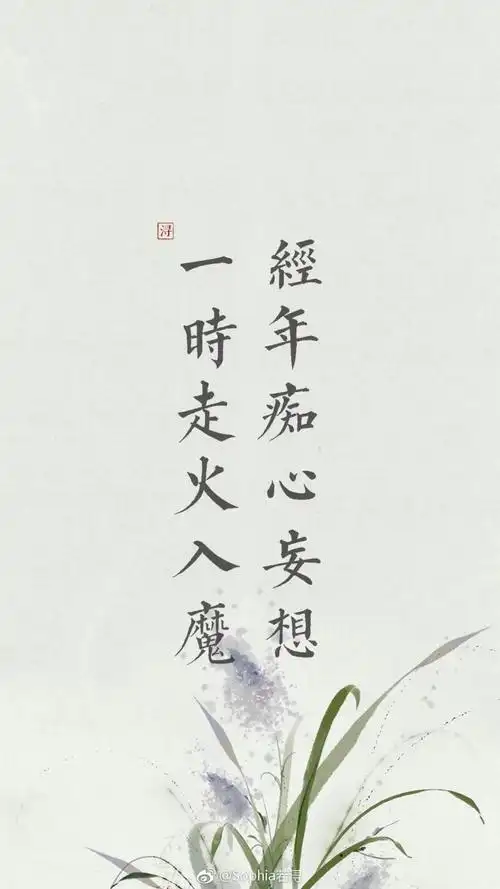 經年痴心妄想
一時走火入魔
浔
@Sophia若寻